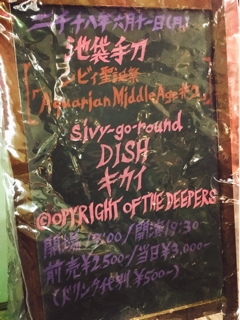 二千十八年六月十一日(月)
池袋手刀
シビィ聖誕祭
「Aquarian Middle Age#3」
sivy-go-round
DISH
キカイ
©OPYRIGHT OF THE DEEPERS
開場19:00/開演19:30
前売¥2500-/当日¥3,000-
(ドリンク代別¥500-)